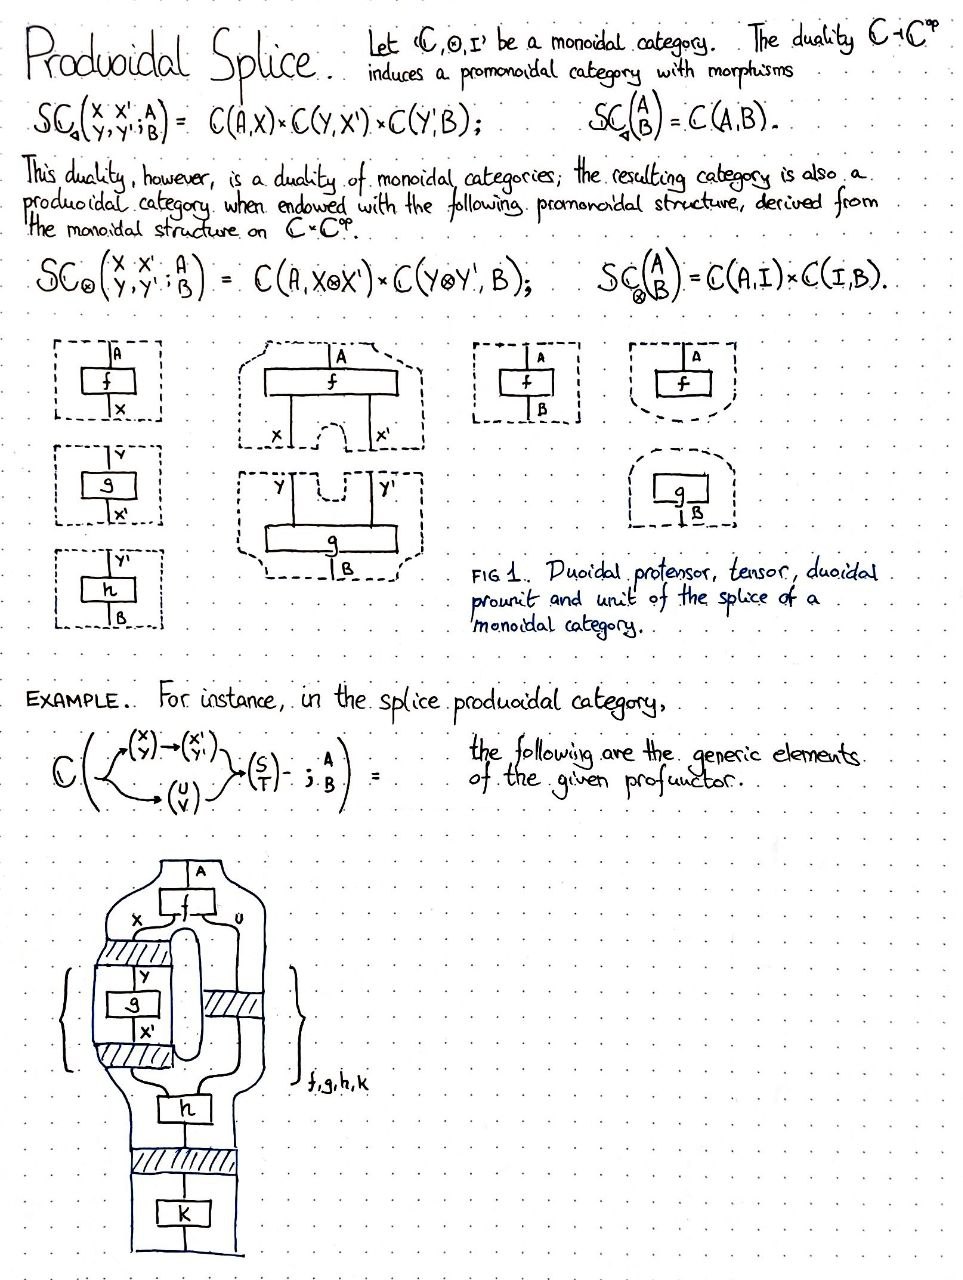 Produoidal Splice. Let (ℂ,⊗,I) be a monoidal category. The duality ℂ⊣ℂᵒᵖ
induces a promonoidal category with morphisms
Sℂ◁(X Y, X' Y'; A B) = ℂ(A,X)×ℂ(Y,X')×ℂ(Y',B); Sℂ◁(A B) = ℂ(A,B).
This duality, however, is a duality of monoidal categories; the resulting category is also a
produoidal category when endowed with the following promonoidal structure, derived from
the monoidal structure on ℂ×ℂᵒᵖ.
Sℂ⊗(X Y, X' Y'; A B) = ℂ(A,X⊗X')×ℂ(Y⊗Y',B); Sℂ⊗(A B) = ℂ(A,I)×ℂ(I,B).
A
f
X
Y
g
X'
Y'
h
B
A
f
X X'
Y Y'
g
B
A
f
B
A
f
g
B
FIG 1. Duoidal protensor, tensor, duoidal
prounit and unit of the splice of a
monoidal category.
EXAMPLE. For instance, in the splice produoidal category,
ℂ( (X Y) → (X' Y') (U V) → (S T) - ; A B ) =
the following are the generic elements
of the given profunctor.
A
f
X U
Y
g
X'
h
k
f,g,h,k